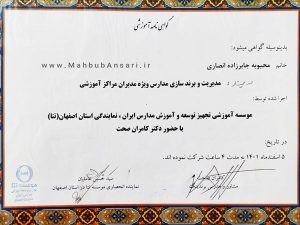 گواهی نامه آموزشی
بدینوسیله گواهی میشود:
www.MahbubAnsari.ir
خانم محبوبه جابرزاده انصاری
مدیریت و برند سازی مدارس ویژه مدیران مراکز آموزشی
اجرا شده توسط:
موسسه آموزشی تجهیز توسعه و آموزش مدارس ایران، نمایندگی استان اصفهان(تتا)
با حضور دکتر کامران صحت
در تاریخ:
۵ اسفندماه ۱۴۰۱ به مدت ۴ ساعت شرکت نموده اند.
نماینده انحصاری موسسه تتا در استان اصفهان